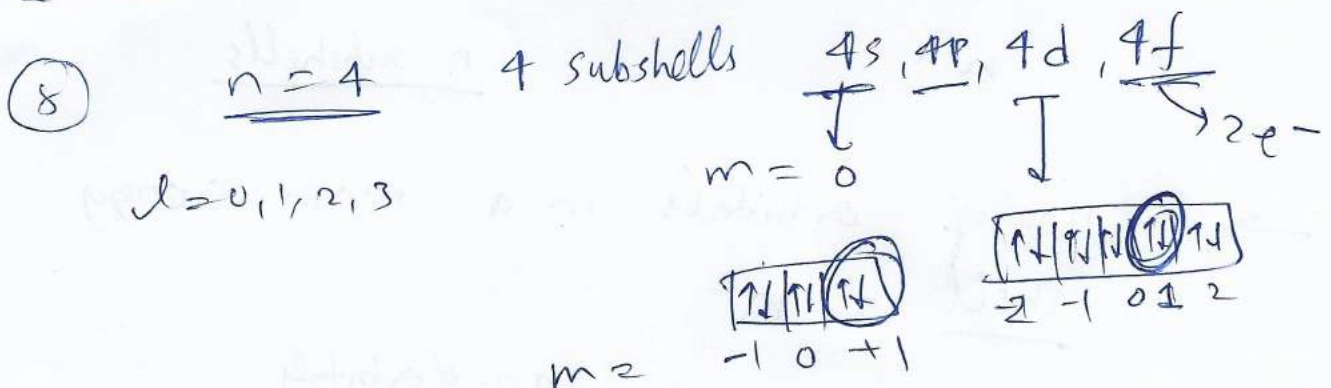 8 n = 4 4 subshells 4s, 4p, 4d, 4f
2e-
m = 0
l = 0, 1, 2, 3
↑↓ ↑↓ ↑↓ ↑↓ ↑↓
-2 -1 0 1 2
↑↓ ↑↓ ↑↓
m = -1 0 +1